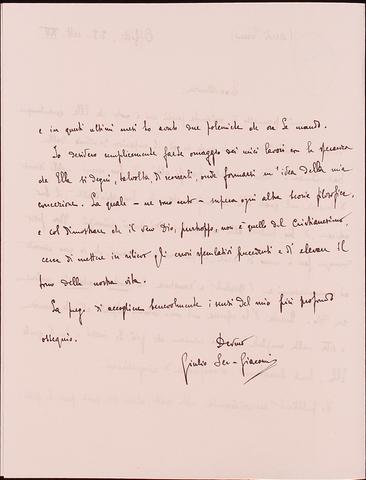 e in questi ultimi mesi ho avuto due polemiche che ora Le mando.
Io desidero semplicemente farle omaggio dei miei lavori con la speranza
che Ella si degni, talvolta di scorrerli, onde formarsi un'idea della mia
concezione. La quale – ne sono certo – supera ogni altra teoria filosofica,
e col dimostrare che il vero Dio, purtroppo, non è quello del Cristianesimo,
cerca di mettere in rilievo gli errori speculativi precedenti e di elevare il
tono della nostra vita.
La prego di accogliere benevolmente i sensi del mio più profondo
ossequio.
Devmo
Giulio Ser-Giacomi